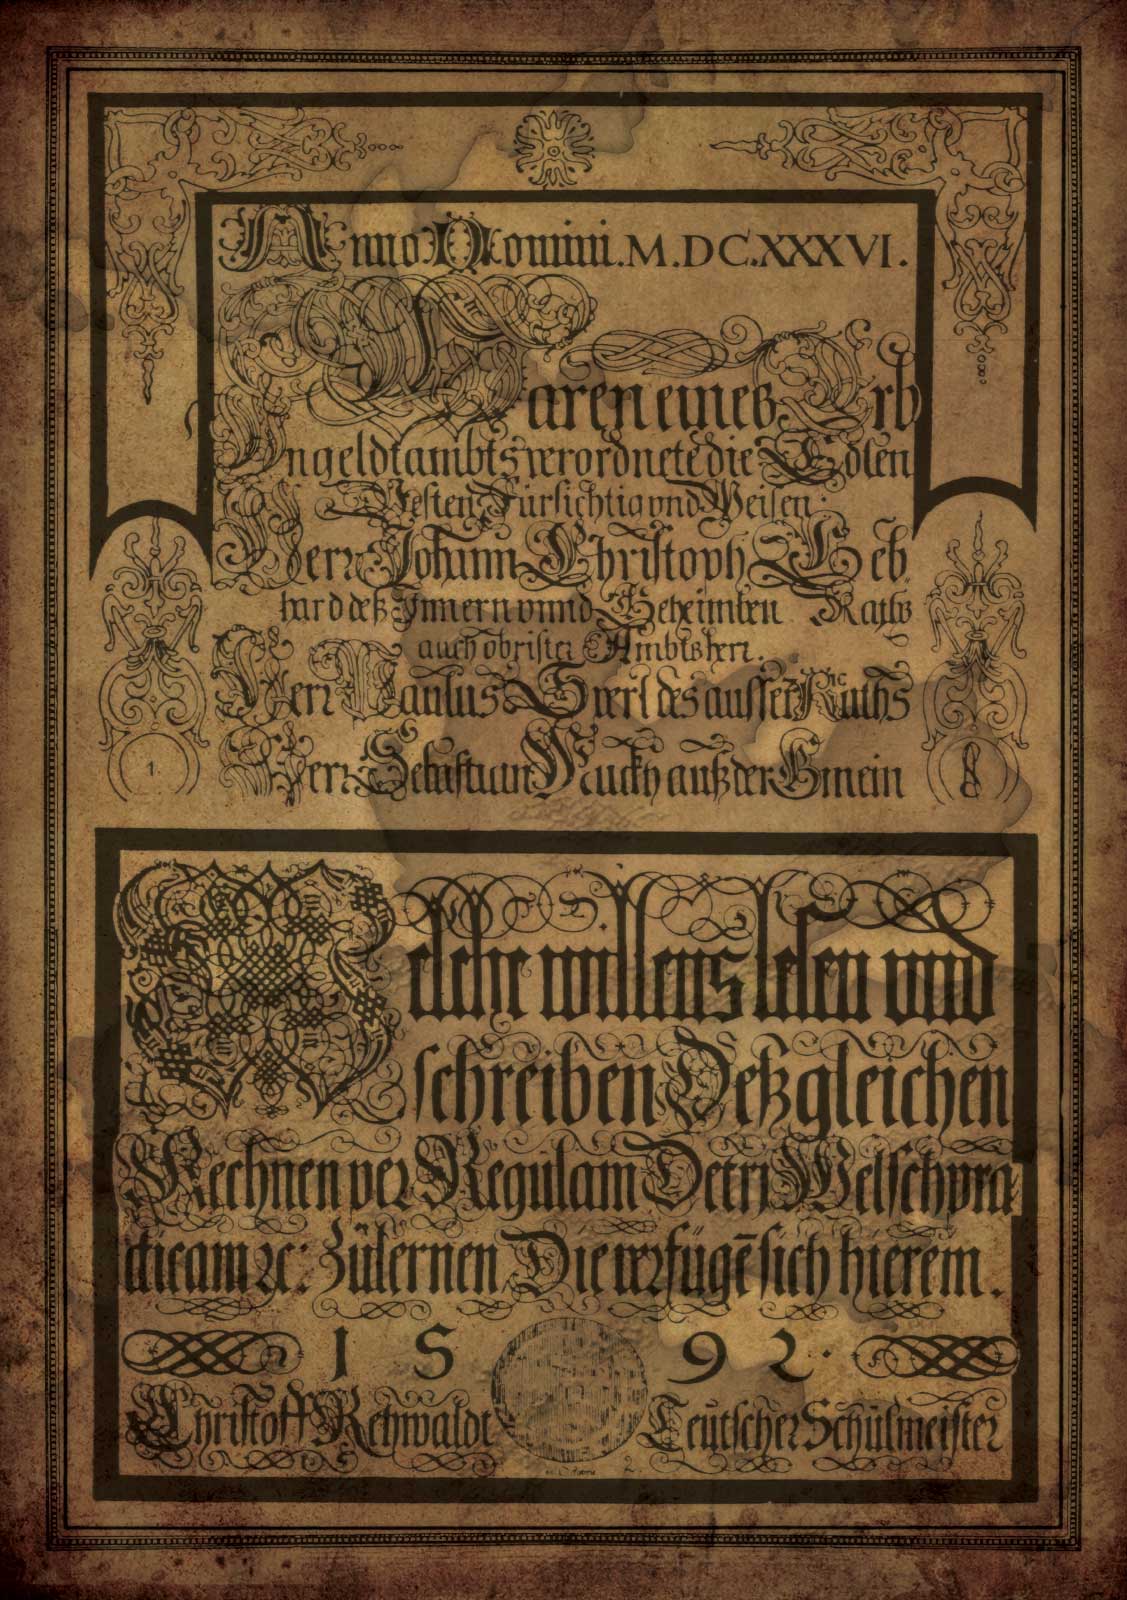 Anno Domini. M.DC.XXXVI.
Waren eines Erb
Ungeldtambts verordnete die Edlen
Vesten Fürsichtig vnd Weisen.
Herr Johann Christoph Geb
hard deß Innern vnnd Geheimben Raths
auch obrister Ambtsherr.
Herr Paulus des ausserē Raths
Herr Sebastian Mucky auß der Gmein
1
Welche willens lesen vnnd
schreiben Deßgleichen
Rechnen per Regulam Detri Welsch pra
cticam ꝛc: Zülernen Die verfügē sich hierein.
1592.
Christoff Rehwaldt Teutscher Schülmeister
2.